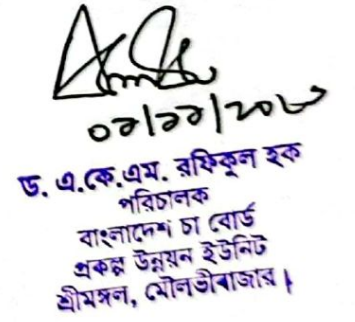 ০৯/১১/২০২০
ড. এ.কে.এম. রফিকুল হক
পরিচালক
বাংলাদেশ চা বোর্ড
প্রকল্প উন্নয়ন ইউনিট
শ্রীমঙ্গল, মৌলভীবাজার।